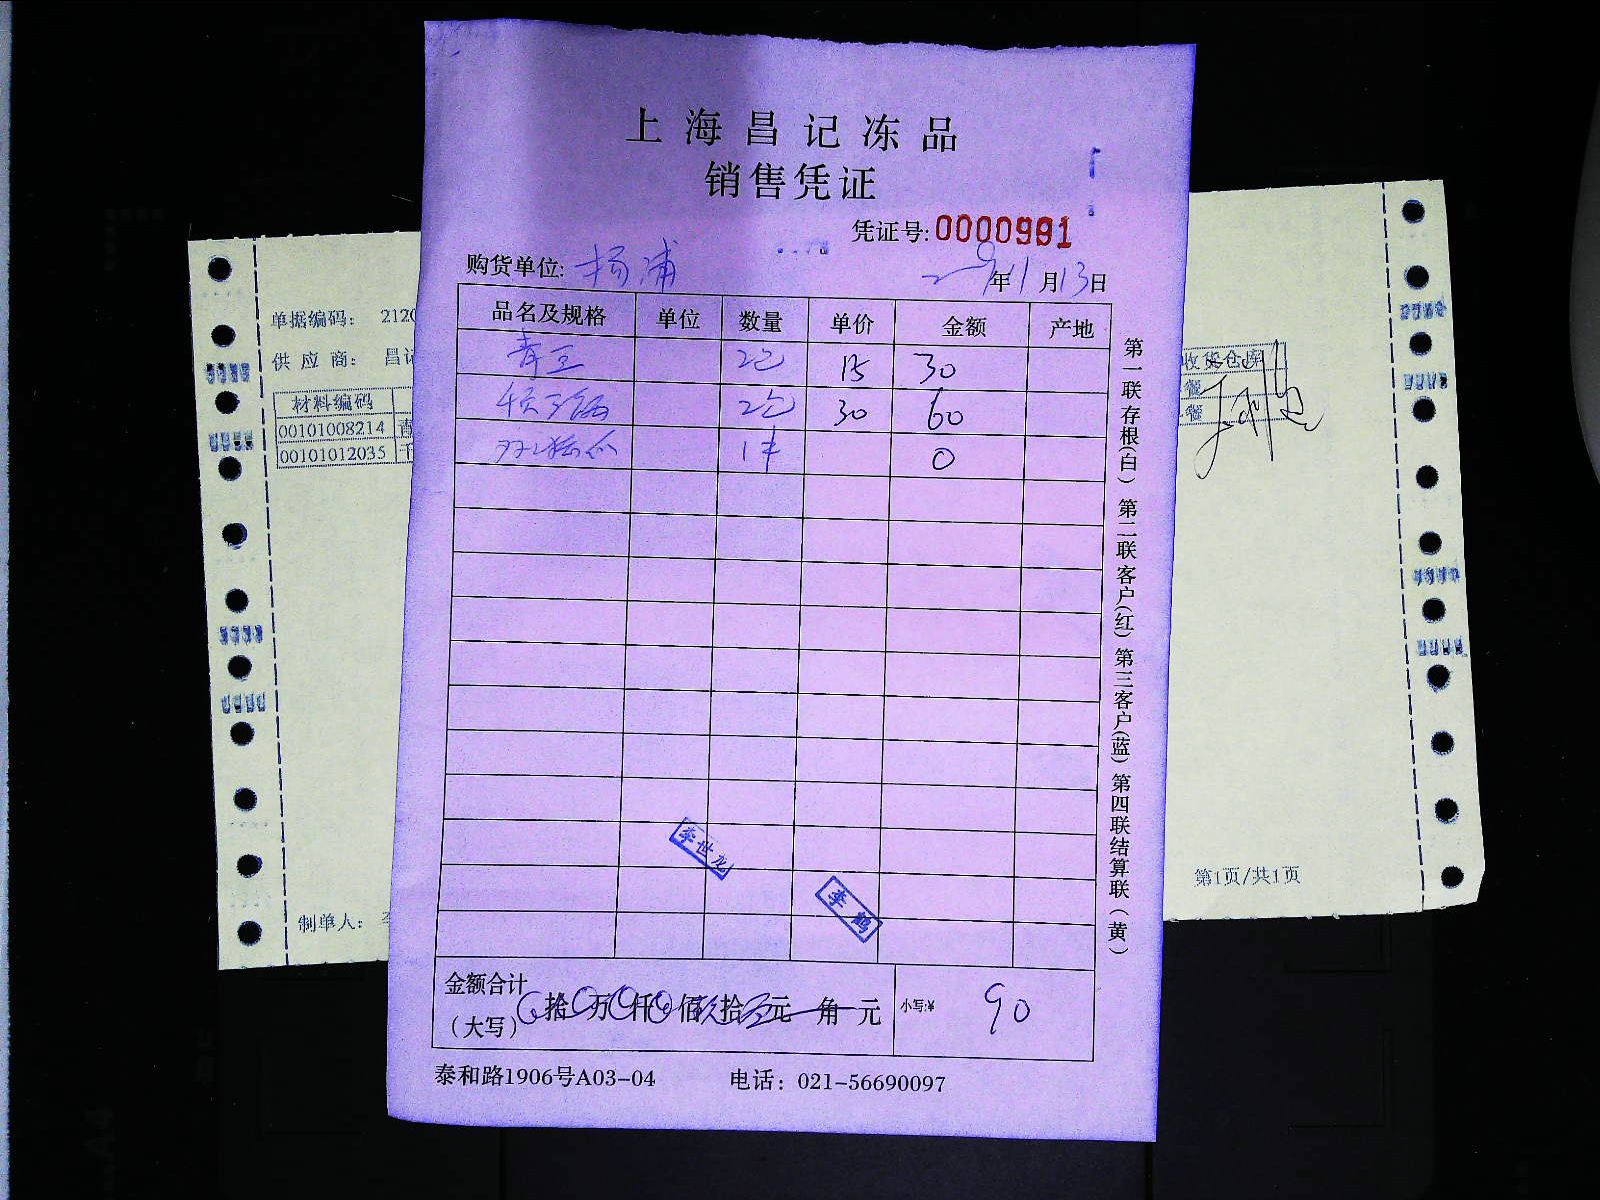 上海昌记冻品
销售凭证
凭证号:0000991
购货单位: 杨浦
年11月13日
品名及规格 单位 数量 单价 金额 产地
青豆 2包 15 30
2包 30 60
1件 0
第一联存根(白) 第二联客户(红) 第三客户(蓝) 第四联结算联(黄)
李世龙
李鹤
金额合计
(大写) 拾 万 仟 佰 拾 元 角 元
小写:¥ 90
泰和路1906号A03-04 电话: 021-56690097
单据编码: 2120
供 应 商: 昌记
材料编码
00101008214 青
00101012035 千
制单人: 李
收货仓库
餐
餐
第1页/共1页